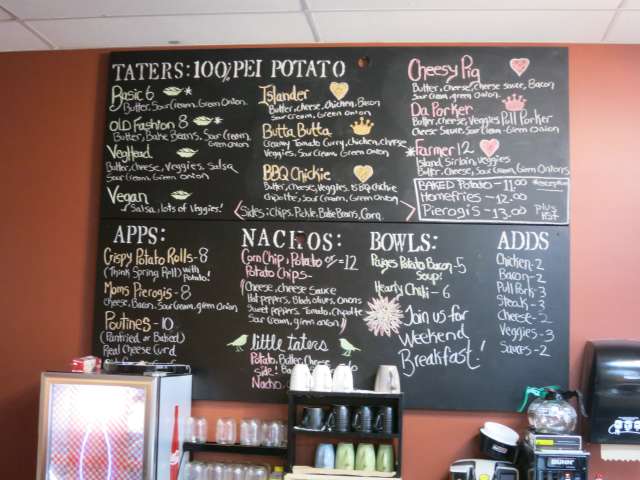 TATERS: 100% PEI POTATO
Basic 6
Butter, Sour Cream, Green Onion
OLD Fashion 8
Butter, Bake Beans, Sour Cream,
Green Onion
VegHead
Butter, Cheese, Veggies, Salsa
Sour Cream, Green Onion
Vegan
Salsa, Lots of Veggies!
Islander
Butter, Cheese, Chicken, Bacon
Sour Cream, Green Onion
Butta Butta
Creamy Tomato Curry, Chicken, Cheese
Veggies, Sour Cream, Green Onion
BBQ Chickie
Butter, Cheese, Veggies, BBQ Chickie
Chipotle, Sour Cream, Green Onion
Sides: Chips, Pickle, Bake Beans, Corn
Cheesy Pig
Butter, Cheese, Cheese Sauce, Bacon
Sour Cream, green Onion
Da Porker
Butter, Cheese, Veggies, Pull Porker
Cheese Sauce, Sour Cream, Green Onion
Farmer 12
Island Sirloin, Veggies
Butter, Cheese, Sour Cream, Green Onions
BAKED Potato - 11.00
Homefries - 12.00
Pierogis - 13.00
plus
HST
APPS:
Crispy Potato Rolls - 8
(Think Spring Roll) with
Potato!
Moms Pierogis - 8
Cheese, Bacon, Sour Cream, green Onion
Poutines - 10
(Panfried or Baked)
Real Cheese Curd
NACHOS:
Corn Chip, Potato or = 12
Potato Chips -
(Cheese, cheese sauce
Hot peppers, Black olives, Onions
Sweet peppers, Tomato, Chipotle
Sour Cream, green onion)
little taters
Potato, Butter, Cheese
side!
Nacho,
BOWLS:
Paiges Potato Bacon - 5
Soup!
Hearty Chili - 6
Join us for
Weekend
Breakfast!
ADDS
Chicken - 2
Bacon - 2
Pull Pork - 3
Steak - 3
Cheese - 2
Veggies - 3
Sauces - 2
BUNN